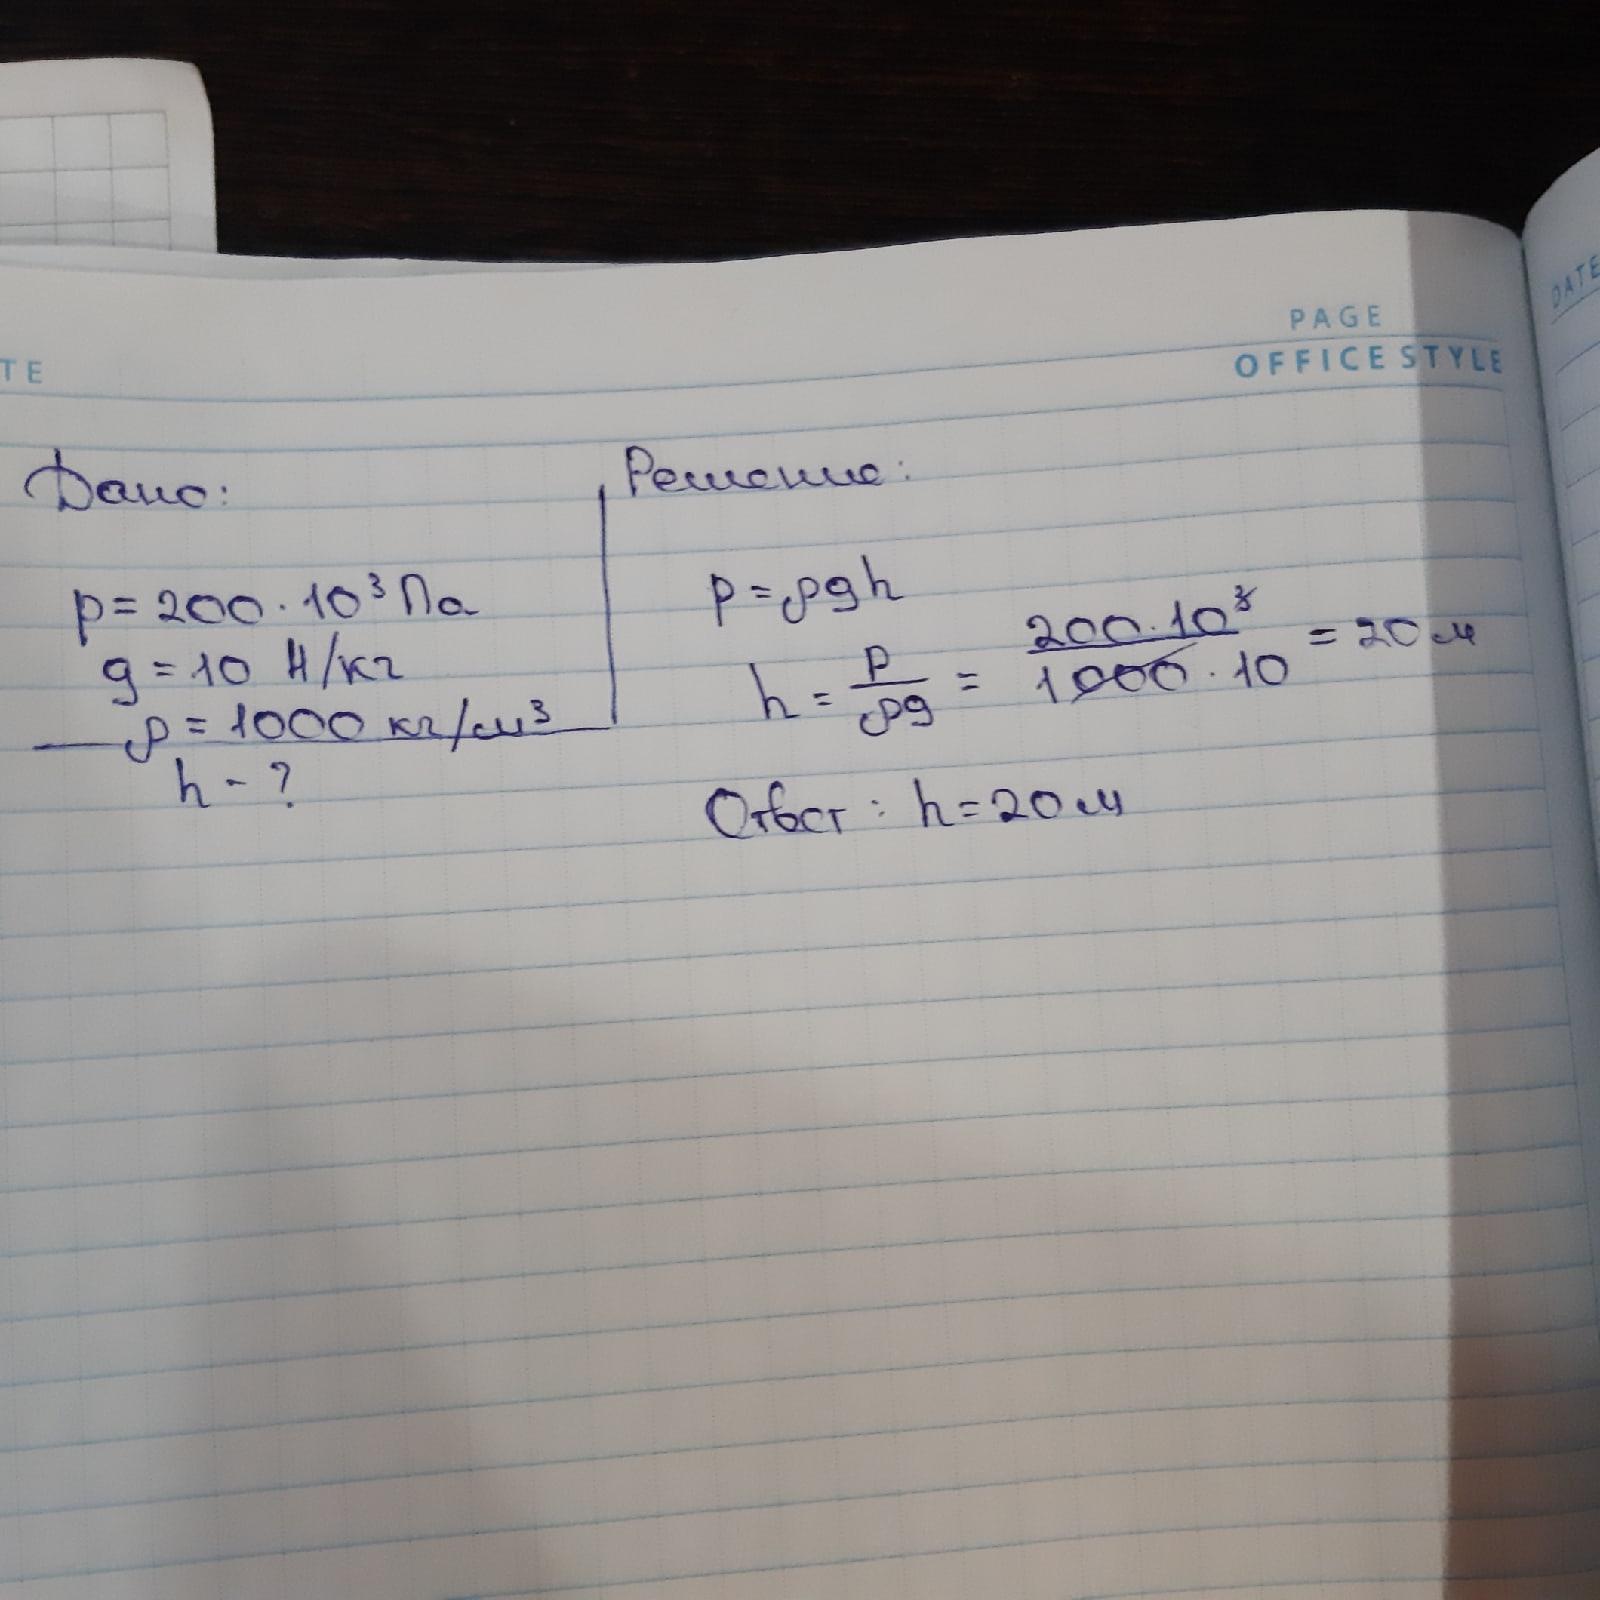 PAGE
OFFICE STYLE
TE
DATE
Дано:
p = 200 · 10³ Па
g = 10 Н/кг
ρ = 1000 кг/м³
h - ?
Решение:
p = ρgh
h = p/ρg = 200 · 10³/1000 · 10 = 20 м
Ответ: h = 20 м